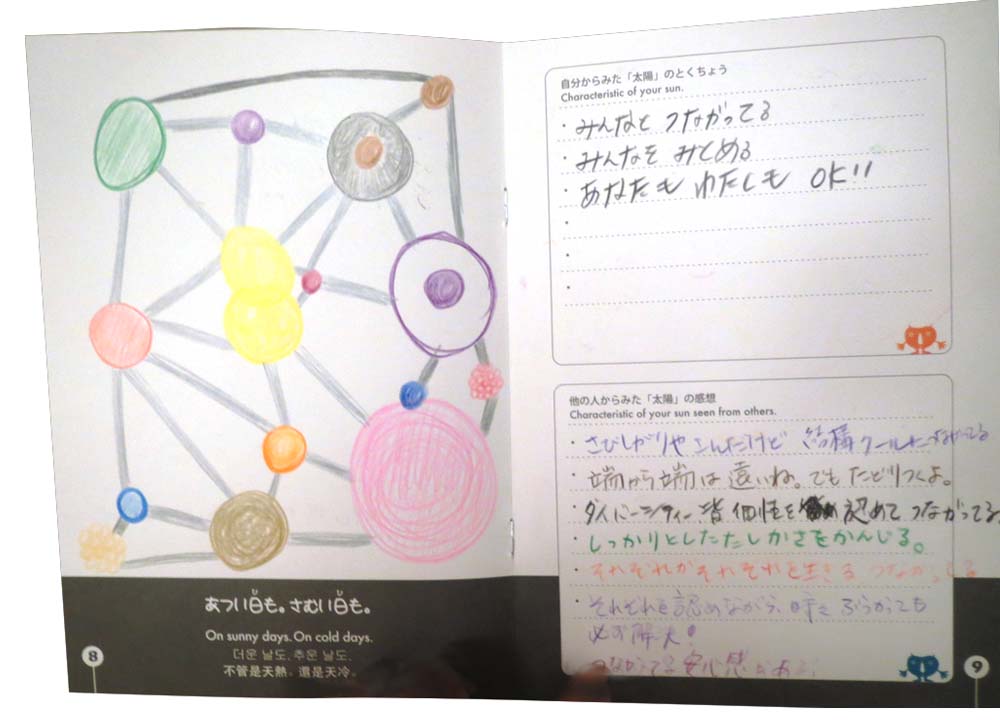 あつい日も。さむい日も。
On sunny days. On cold days.
더운 날도. 추운 날도.
不管是天熱。還是天冷。
8
自分からみた「太陽」のとくちょう
Characteristic of your sun.
・みんなと つながってる
・みんなを みとめる
・あなたも わたしも OK!!
他の人からみた「太陽」の感想
Characteristic of your sun seen from others.
・さびしがりや けど 結構クールに つながってる
・端から端は遠いね。でも たどりつくよ。
・ダイバーシティー 皆 個性を 認めて つながってる
・しっかりとしたたしかさをかんじる。
・それぞれがそれぞれを生きる つながってる
・それぞれを認めながら、時に ぶつかっても
必ず解決!
つながってる安心感がある!
9